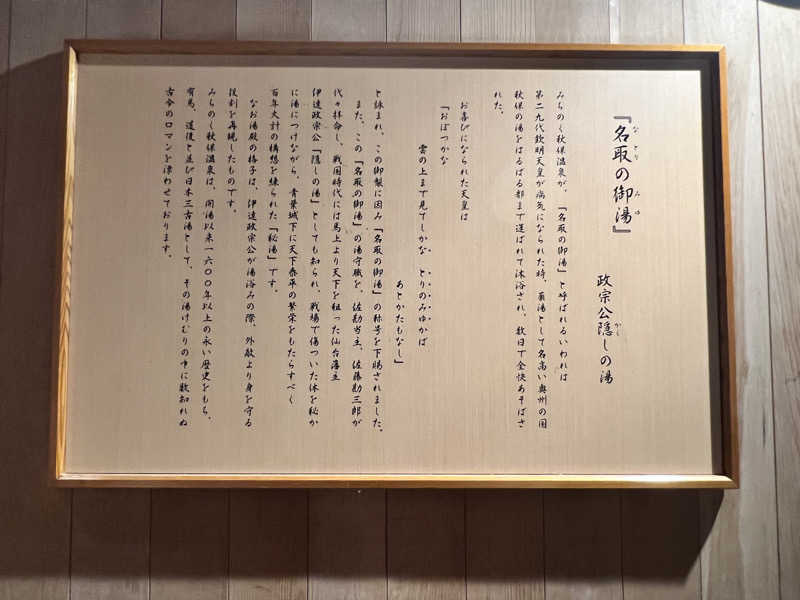 『名取の御湯』
政宗公隠しの湯
みちのく秋保温泉が、「名取の御湯」と呼ばれるいわれは
第二九代欽明天皇が病気になられた時、薬湯として名高い奥州の国
秋保の湯をはるばる都まで運ばれて沐浴され、数日で全快あそばさ
れた。
お喜びになられた天皇は
「おぼつかな
雲の上まで見てしかな とりのみゆかば
あとかたもなし」
と詠まれ、この御製に因み「名取の御湯」の称号を下賜されました。
また、この「名取の御湯」の湯守職を、佐勘当主、佐藤勘三郎が
代々拝命し、戦国時代には馬上より天下を狙った仙台藩主
伊達政宗公「隠しの湯」としても知られ、戦場で傷ついた体を秘か
に湯につけながら、青葉城下に天下泰平の繁栄をもたらすべく
百年大計の構想を練られた「秘湯」です。
なお湯殿の格子は、伊達政宗公が湯浴みの際、外敵より身を守る
役割を再現したものです。
みちのく秋保温泉は、開湯以来一六〇〇年以上の永い歴史をもち、
有馬、道後と並び日本三古湯として、その湯けむりの中に数知れぬ
古今のロマンを漂わせております。